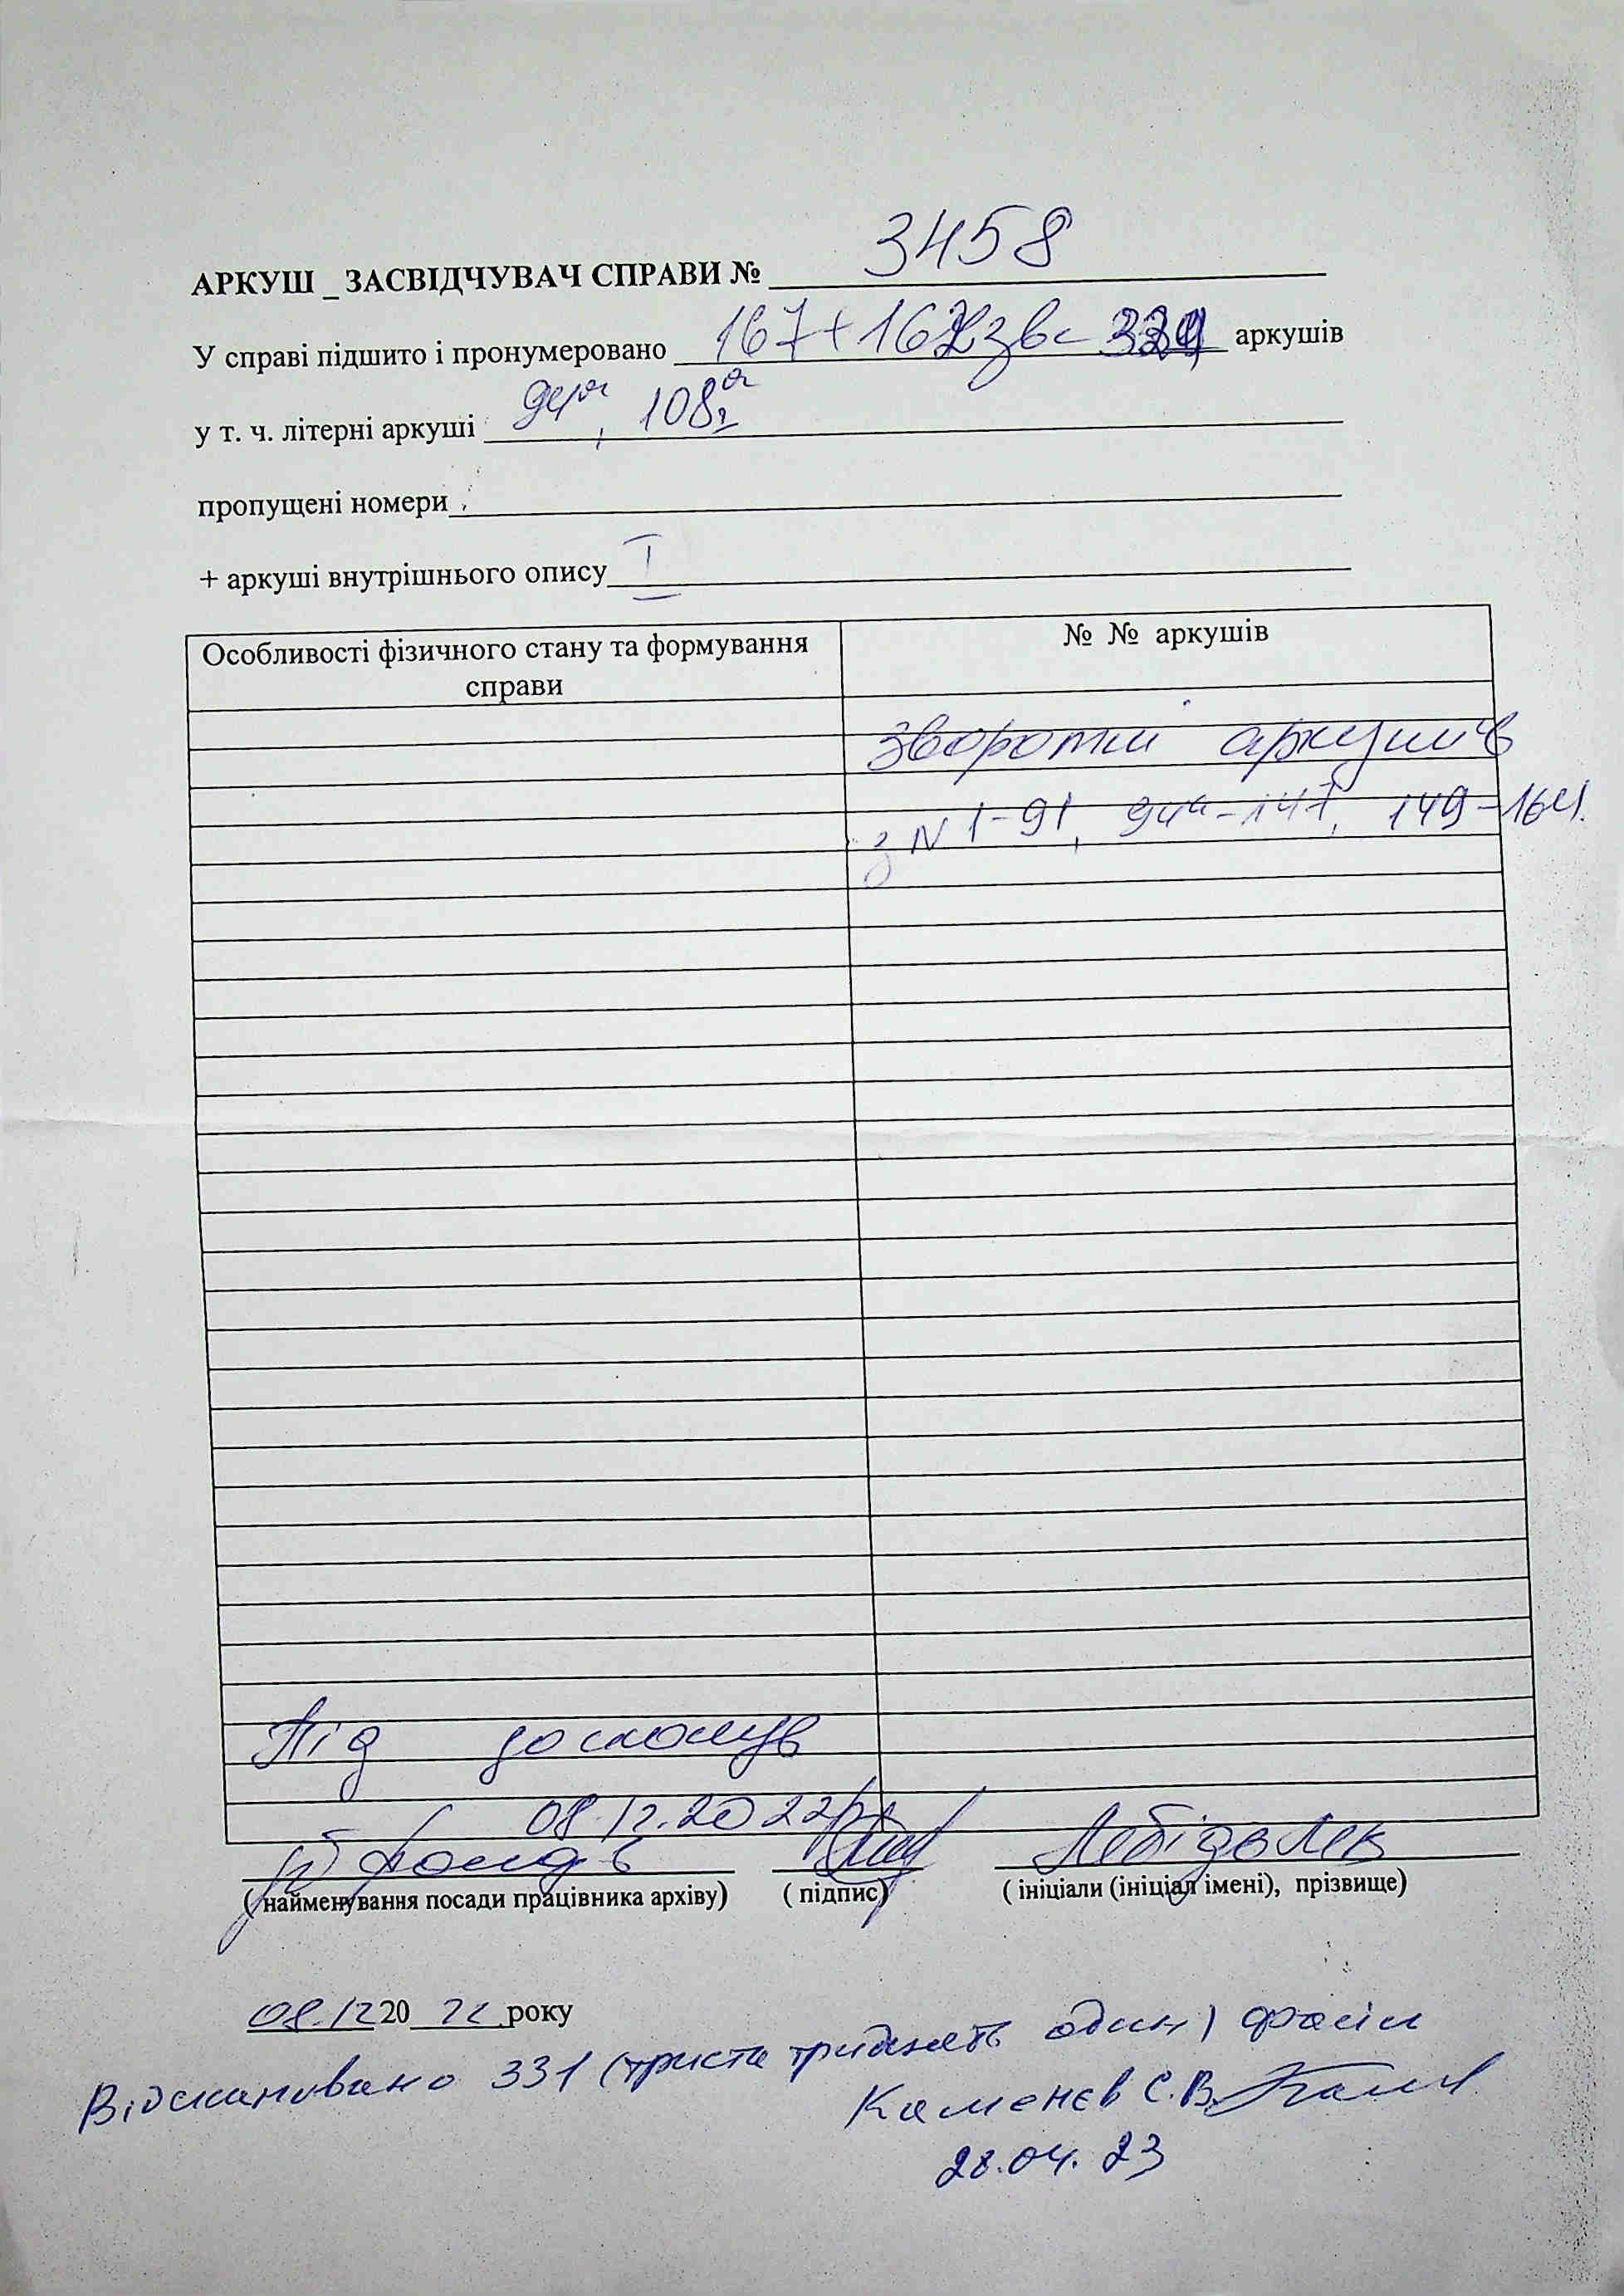 АРКУШ _ ЗАСВІДЧУВАЧ СПРАВИ № 3458
У справі підшито і пронумеровано 167+162зв= аркушів
у т. ч. літерні аркуші , 108а
пропущені номери
+ аркуші внутрішнього опису I
Особливості фізичного стану та формування справи
№ № аркушів
зворотні аркушів
з N 1-91, 94а-147, 149-164.
Під
08.12.2022р.
( найменування посади працівника архіву) ( підпис) ( ініціали (ініціал імені), прізвище)
08.12 20 22 року
Відскановано 331 (триста тридцять один) файл
Каменєв С.В.
28.04.23